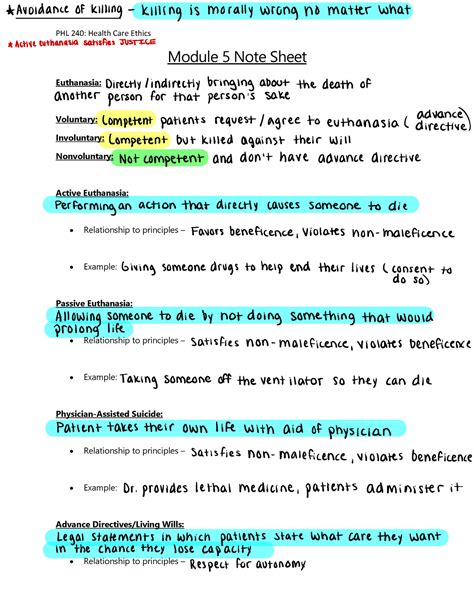 * Avoidance of Killing - Killing is morally wrong no matter what
PHL 240: Health Care Ethics
* Active euthanasia satisfies JUSTICE
Module 5 Note Sheet
Euthanasia: Directly/indirectly bringing about the death of
another person for that person's sake
Voluntary: Competent patients request/agree to euthanasia (advance
directive)
Involuntary: Competent but killed against their will
Nonvoluntary: Not competent and don't have advance directive
Active Euthanasia:
Performing an action that directly causes someone to die
• Relationship to principles – Favors beneficence, violates non-maleficence
• Example: Giving someone drugs to help end their lives (consent to
do so)
Passive Euthanasia:
Allowing someone to die by not doing something that would
prolong life
• Relationship to principles – Satisfies non-maleficence, violates beneficence
• Example: Taking someone off the ventilator so they can die
Physician-Assisted Suicide:
Patient takes their own life with aid of physician
• Relationship to principles – Satisfies non-maleficence, violates beneficence
• Example: Dr. provides lethal medicine, patients administer it
Advance Directives/Living Wills:
Legal statements in which patients state what care they want
in the chance they lose capacity
• Relationship to principles – Respect for autonomy